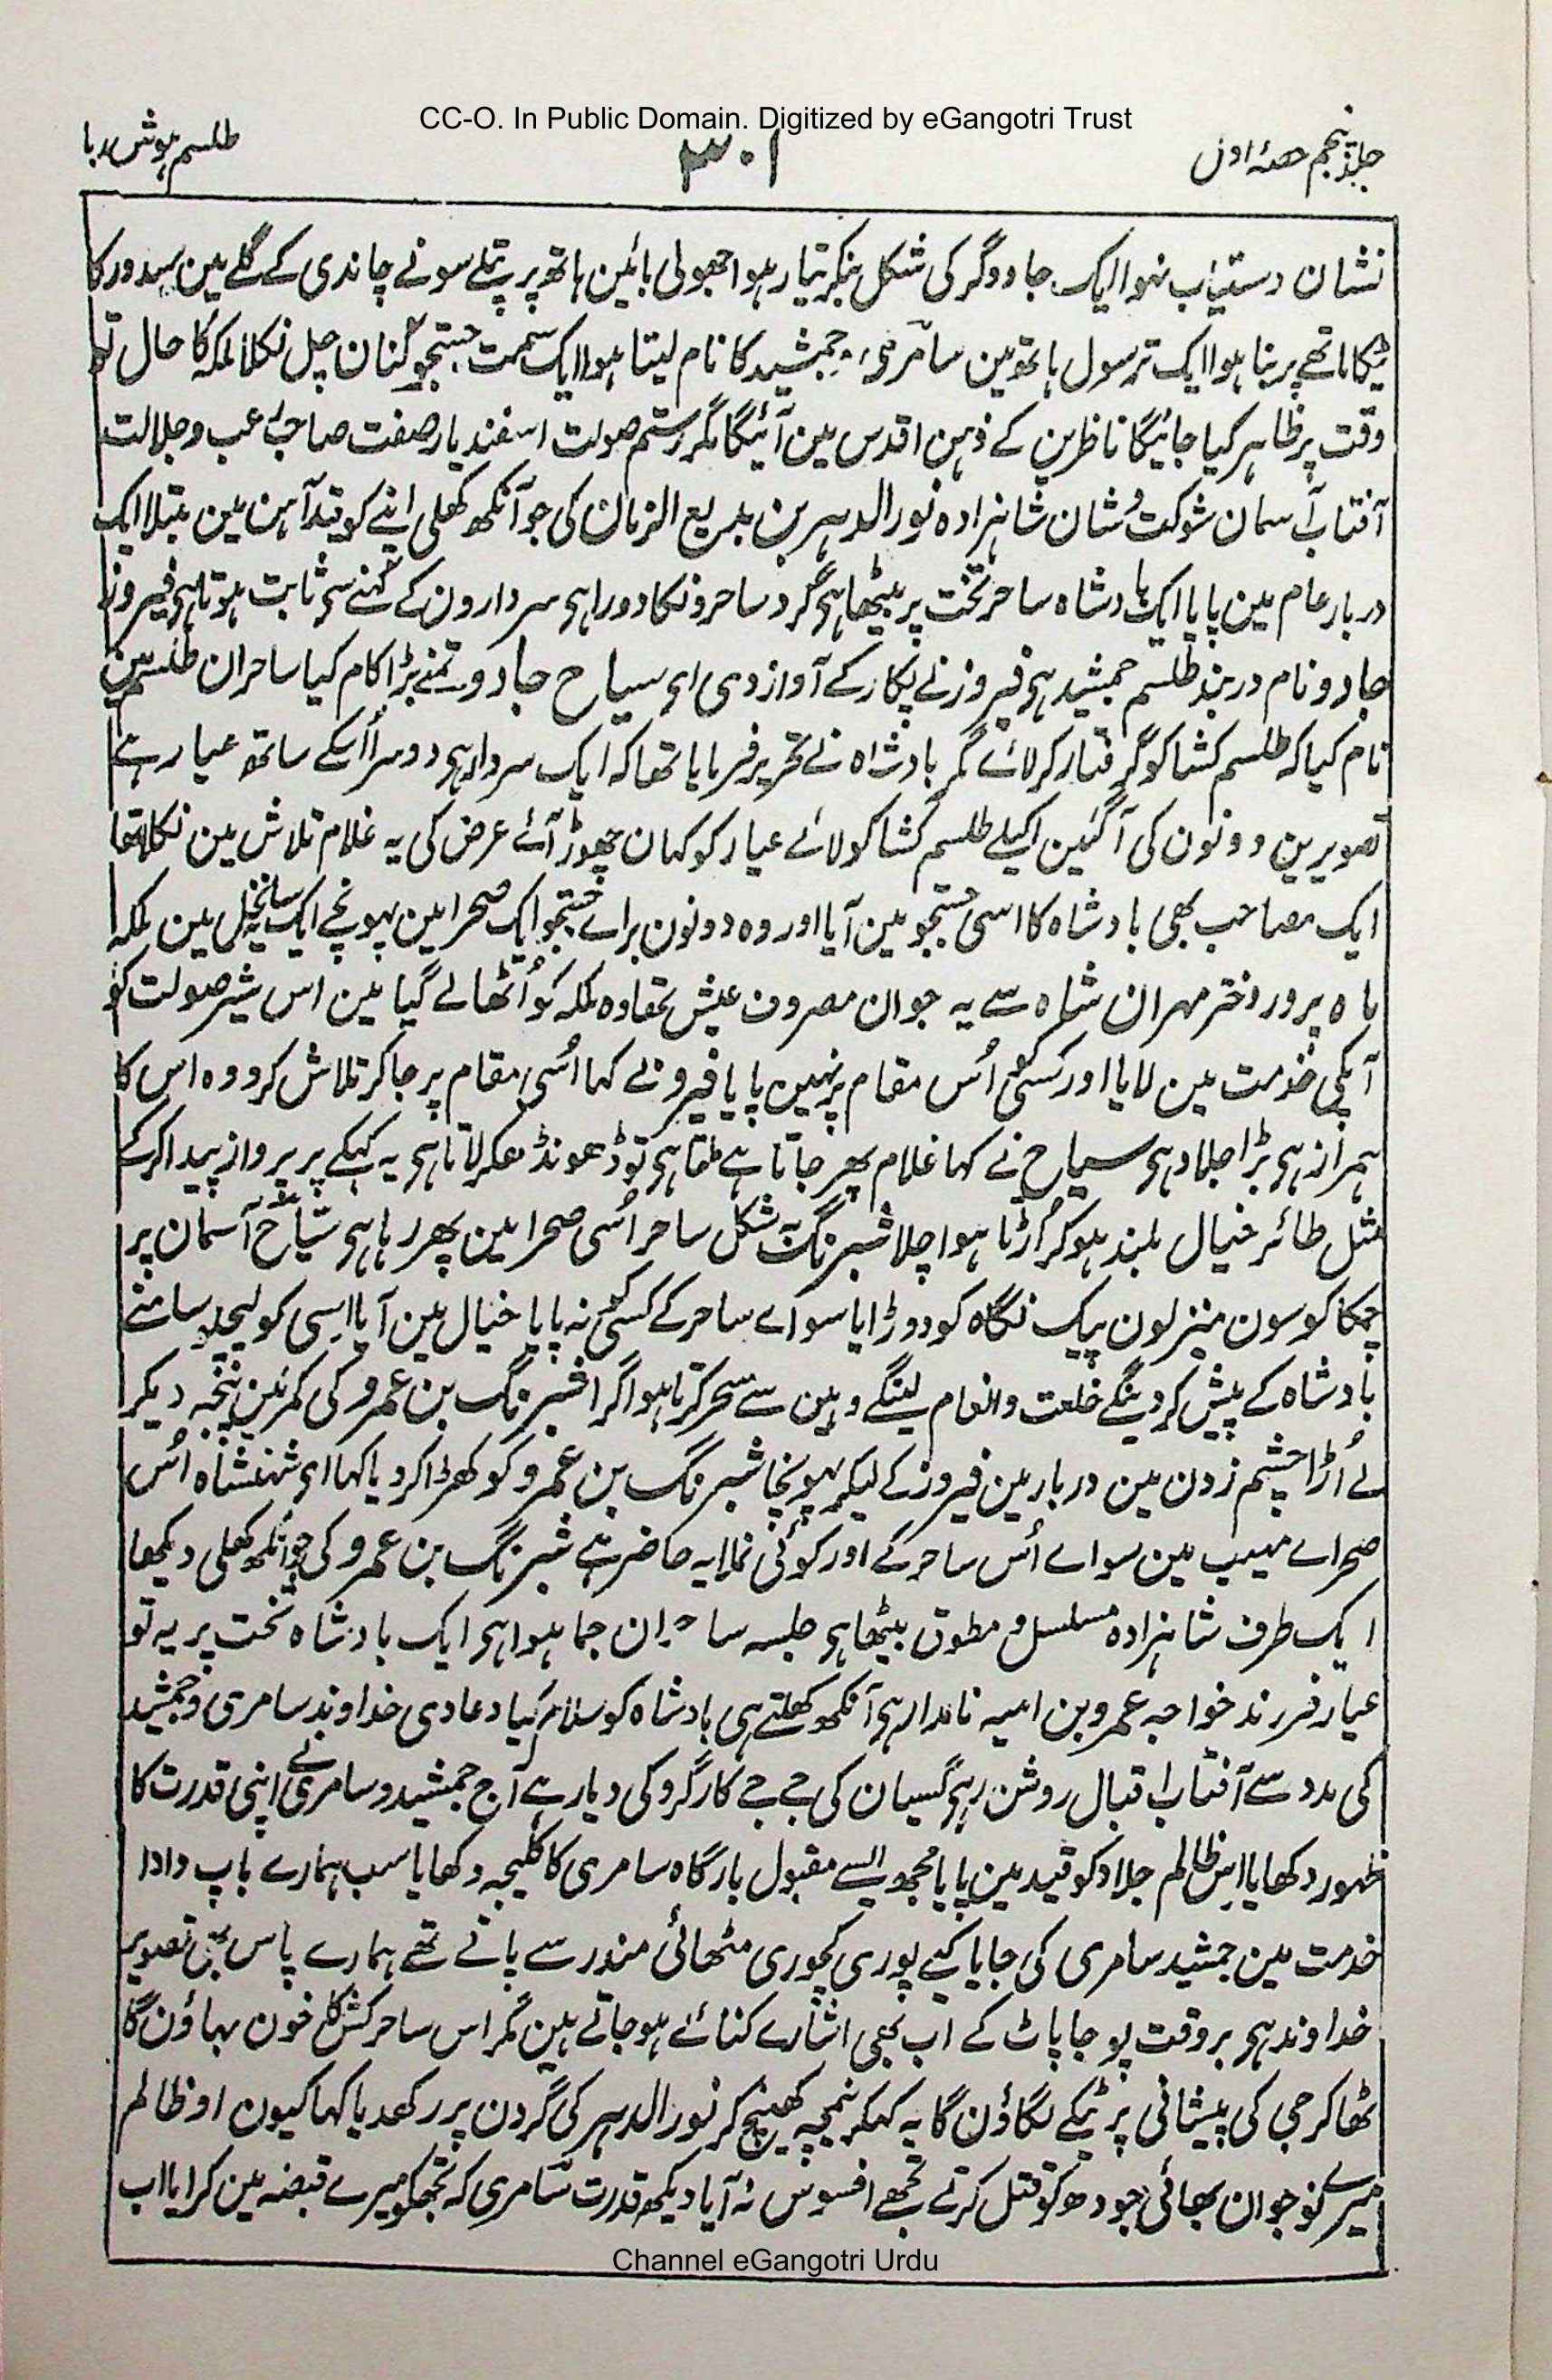 CC-O. In Public Domain. Digitized by eGangotri Trust
جلد پنجم حصۂ اول
۳۰۱
طلسم ہوش ربا
نشان دستیاب نہوا ایک جادوگر کی شکل بنکر تیار ہوا جھولی بائین ہاتھ پر پتلے سونے چاندی کے گلے مین سیندور کا
ٹیکا ماتھے پر بنا ہوا ایک ترسول ہاتھ مین سامری و جمشید کا نام لیتا ہوا ایک سمت جستجو کنان چل نکلا ملکہ کا حال تو
وقت پر ظاہر کیا جائیگا ناظرین کے ذہن اقدس مین آئیگا مگر رستم صولت اسفندیار صفت صاحب رعب و جلالت
آفتاب آسمان شوکت و شان شاہزادہ نور الدہر بن بدیع الزمان کی جو آنکھ کھلی اپنے کو قید آہن مین مبتلا ایک
دربار عام مین پایا ایک بادشاہ ساحر تخت پر بیٹھا ہی گرد ساحرونکا دورا ہی سردارون کے کہنے سے ثابت ہوتا ہی فیروز
جادو نام دربند طلسم جمشید ہی فیروز نے پکار کے آواز دی ای سیاح جادو تمنے بڑا کام کیا ساحران طلسم مین
نام کیا کہ طلسم کشا کو گرفتار کر لائے مگر بادشاہ نے تحریر فرمایا تھا کہ ایک سردار ہی دوسرا اُسکے ساتھ عیار ہے
تصویرین دونون کی آگئین اکیلے طلسم کشا کو لائے عیار کو کہان چھوڑ آئے عرض کی یہ غلام تلاش مین نکلا تھا
ایک مصاحب بھی بادشاہ کا اسی جستجو مین آیا اور وہ دونون براے جستجو ایک صحرا مین پہونچے ایک مین ملکہ
ماہ پرور دختر مہران شاہ سے یہ جوان مصروف عیش تھا وہ ملکہ کو اُٹھا لے گیا مین اس شیر صولت کو
آپکی خدمت مین لایا اور کسیکو اُس مقام پر نہین پایا فیروز نے کہا اُسی مقام پر جا کر تلاش کرو وہ اس کا
ہمراز ہی بڑا جلاد ہی سیاح نے کہا غلام پھر جاتا ہے ملتا ہی تو ڈھونڈھکر لاتا ہی یہ کہکے پر پرواز پیدا کرکے
مثل طائر خیال بلند ہو کر اُڑتا ہوا چلا شبرنگ بہ شکل ساحر اُسی صحرا مین پھر رہا ہی سیاح آسمان پر
چمکا کوسون منزلون پیک نگاہ کو دوڑایا سواے ساحر کے کسیکو نہ پایا خیال مین آیا اِسی کو لیچلو سامنے
بادشاہ کے پیش کر دینگے خلعت و انعام لینگے وہین سے سحر کرتا ہوا گرا شبرنگ بن عمرو کی کمر مین پنجہ دیکر
لے اُڑا چشم زدن مین دربار مین فیروز کے لیکر پہونچا شبرنگ بن عمرو کو کھڑا کر دیا کہا ای شہنشاہ اُس
صحراے مہیب مین سواے اُس ساحر کے اور کوئی نملا یہ حاضر ہے شبرنگ بن عمرو کی جو آنکھ کھلی دیکھا
ایک طرف شاہزادہ مسلسل و مطوق بیٹھا ہی جلسہ ساحران جما ہوا ہی ایک بادشاہ تخت پر یہ تو
عیار فرزند خواجہ عمرو بن امیہ نامدار ہی آنکھ کھلتے ہی بادشاہ کو سلام کیا دعا دی خداوند سامری و جمشید
کی مدد سے آفتاب اقبال روشن رہے گسیان کی جے جے کار گرو کی دیا رہے آج جمشید و سامری نے اپنی قدرت کا
ظہور دکھایا اِس ظالم جلاد کو قید مین پایا مجھ ایسے مقبول بارگاہ سامری کا کلیجہ دکھایا سب ہمارے باپ دادا
خدمت مین جمشید سامری کی جایا کیے پوری کچوری مٹھائی مندر سے پاتے تھے ہمارے پاس بھی تصویر
خداوند ہی بر وقت پوجا پاٹ کے اب بھی اشارے کنائے ہو جاتے ہین مگر اس ساحر کش کا خون بہاؤن گا
ٹھاکر جی کی پیشانی پر ٹیکے لگاؤن گا یہ کہکر نیمچہ کھینچ کر نور الدہر کی گردن پر رکھدیا کہا کیون او ظالم
میرے نوجوان بھائی جودھ کو قتل کرتے تجھے افسوس نہ آیا دیکھ قدرت سامری کہ تجھکو میرے قبضہ مین کرایا اب
Channel eGangotri Urdu